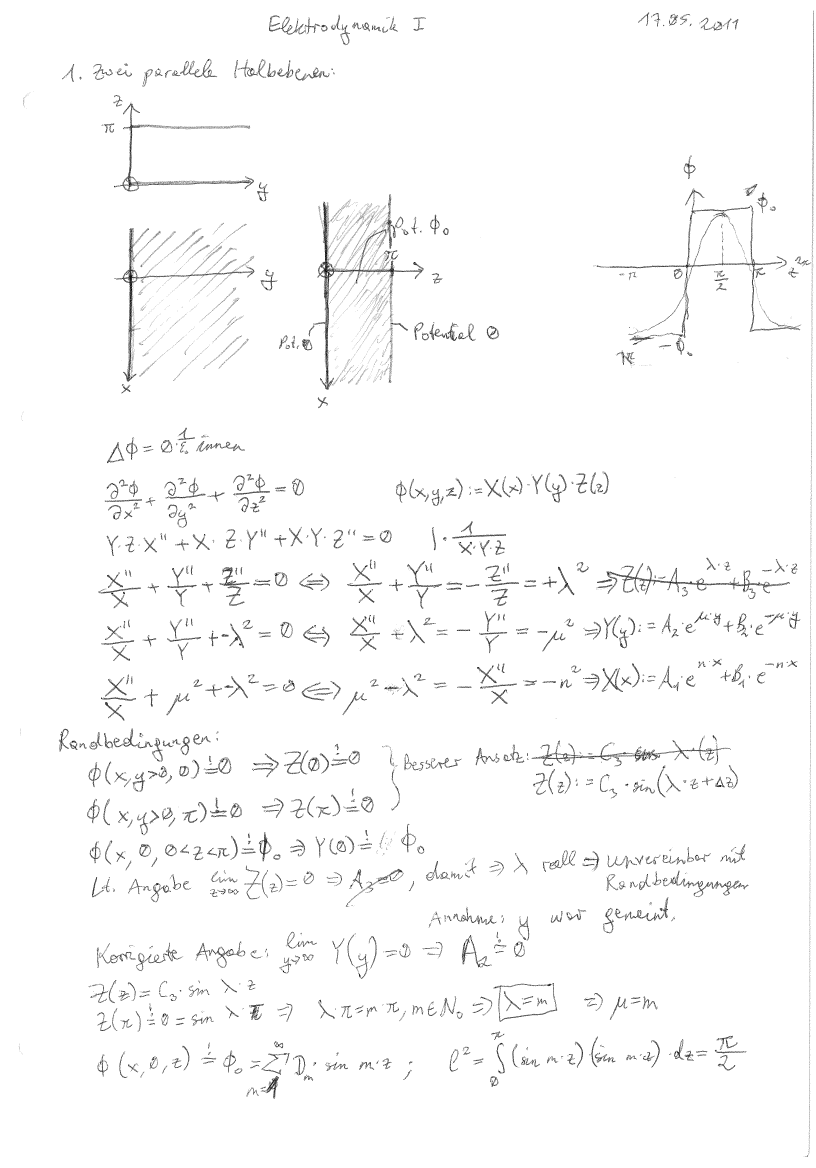 Elektrodynamik I
17.05.2011
1. Zwei parallele Halbebenen:
z
π
y
y
x
Pot. Φ₀
π
z
Pot. 0
Potential 0
x
Φ
Φ₀
-π 0 π/2 π 2π
z
-Φ₀
ΔΦ = 0 innen
∂²Φ/∂x² + ∂²Φ/∂y² + ∂²Φ/∂z² = 0 Φ(x,y,z) := X(x)·Y(y)·Z(z)
Y·Z·X'' + X·Z·Y'' + X·Y·Z'' = 0 |· 1/(X·Y·Z)
X''/X + Y''/Y + Z''/Z = 0 ⇔ X''/X + Y''/Y = - Z''/Z = +λ² ⇒ Z(z) := A₃·e^(λ·z) + B₃·e^(-λ·z)
X''/X + Y''/Y + -λ² = 0 ⇔ X''/X + λ² = - Y''/Y = -μ² ⇒ Y(y) := A₂·e^(μ·y) + B₂·e^(-μ·y)
X''/X + μ² + -λ² = 0 ⇔ μ² - λ² = - X''/X = -n² ⇒ X(x) := A₁·e^(n·x) + B₁·e^(-n·x)
Randbedingungen:
Φ(x, y>0, 0) ≟ 0 ⇒ Z(0) ≟ 0 } Besserer Ansatz: Z(z) := C₃· sin λ·(z)
Z(z) := C₃·sin(λ·z+Δz)
Φ(x, y>0, π) ≟ 0 ⇒ Z(π) ≟ 0
Φ(x, 0, 0<z<π) ≟ Φ₀ ⇒ Y(0) ≟ Φ₀
Lt. Angabe lim z→∞ Z(z) = 0 ⇒ A₃=0, damit ⇒ λ reell ⇒ unvereinbar mit
Randbedingungen
Annahme: y war gemeint.
Korrigierte Angabe: lim y→∞ Y(y) = 0 ⇒ A₂ ≟ 0
Z(z) = C₃· sin λ·z
Z(π) ≟ 0 = sin λ·π ⇒ λ·π = m·π, m∈N₀ ⇒ λ=m ⇒ μ=m
Φ(x, 0, z) ≟ Φ₀ = ∑_(m=1)^∞ D_m· sin m·z ; l² = ∫_0^π (sin m·z)(sin m·z)·dz = π/2